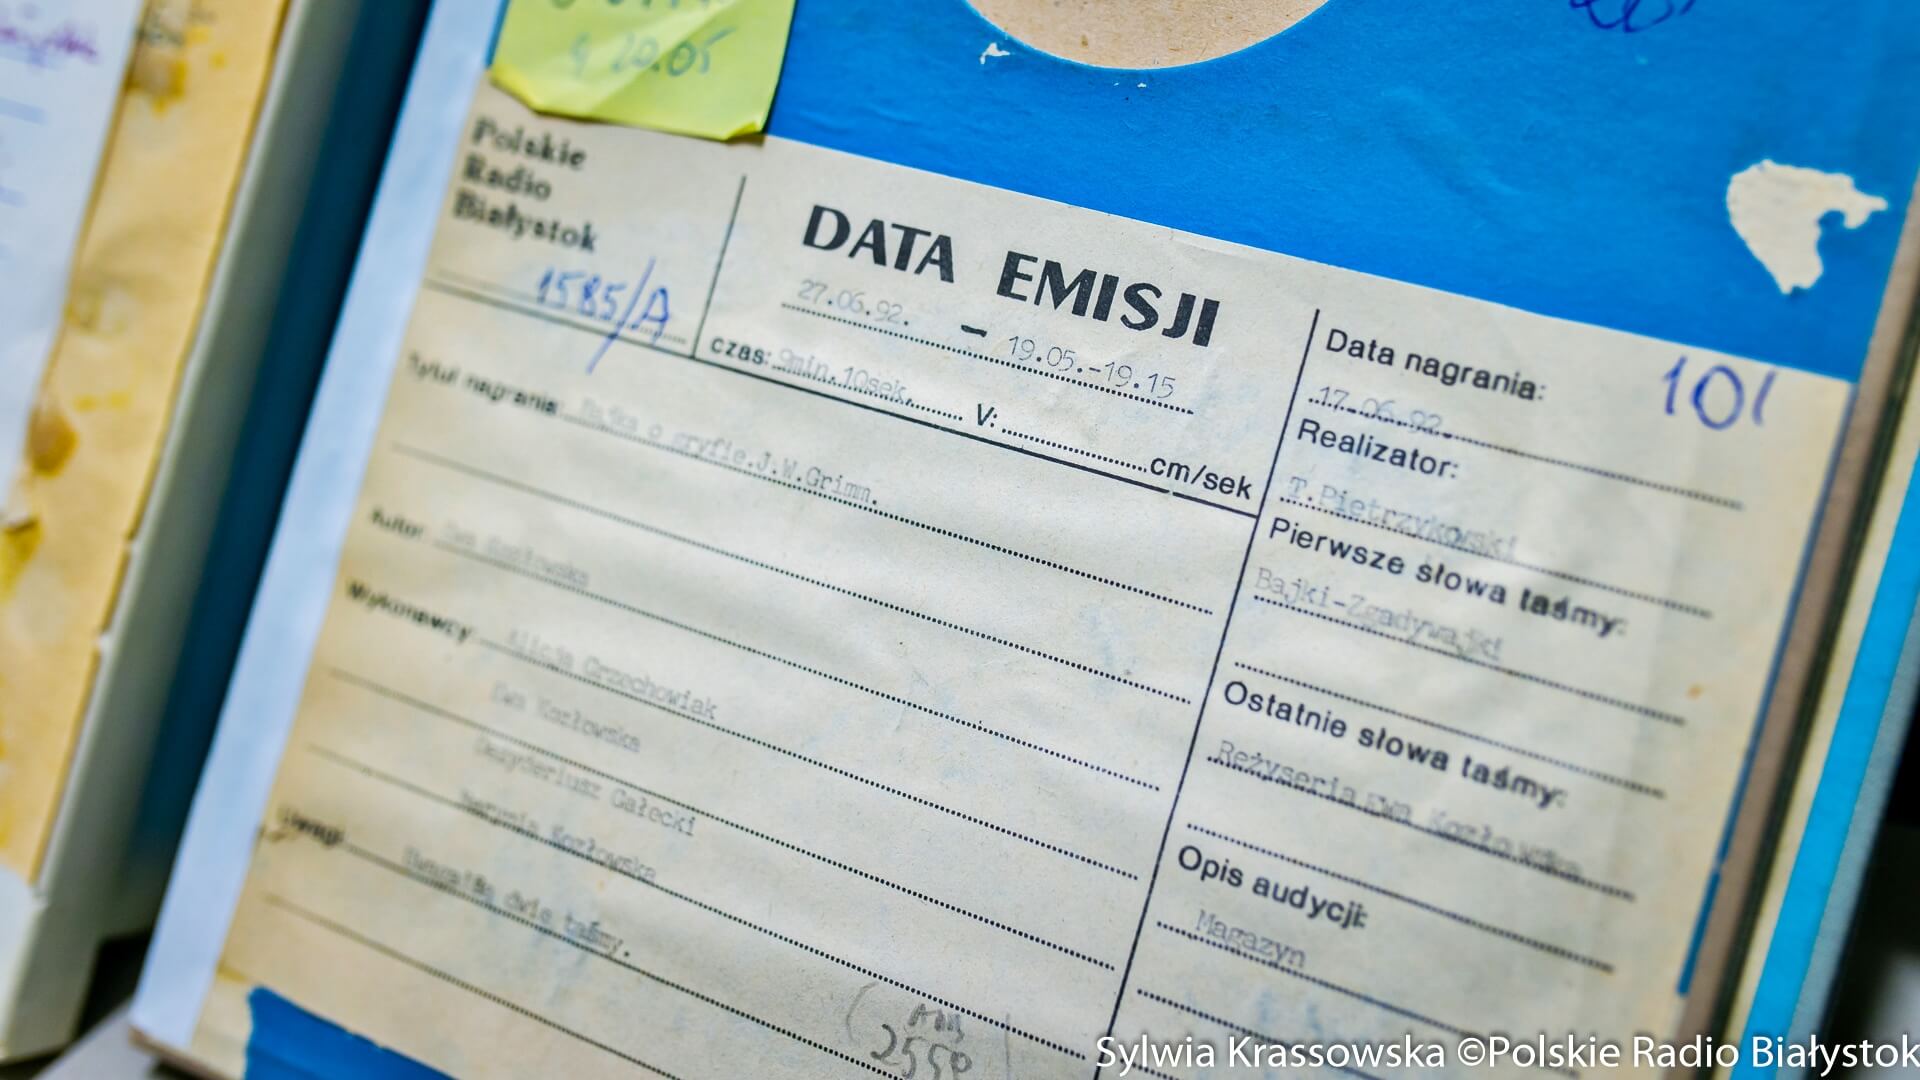 20.05
Polskie
Radio
Białystok
1585/A
DATA EMISJI
27.06.92. - 19.05.-19.15
czas: 9min.10sek. V: cm/sek
Tytuł nagrania: Bajka o gryfie.J.W.Grimm.
Autor: Ewa Kozłowska
Wykonawcy: Alicja Grzechowiak
Ewa Kozłowska
Dezyderiusz Gałecki
Kozłowska
Uwagi: Uwaga!Są dwie taśmy.
2550
Data nagrania:
101
17.06.92.
Realizator:
T.Pietrzykowski
Pierwsze słowa taśmy:
Bajki-Zgadywajki
Ostatnie słowa taśmy:
Reżyseria Ewa Kozłowska
Opis audycji:
Magazyn
Sylwia Krassowska ©Polskie Radio Białystok